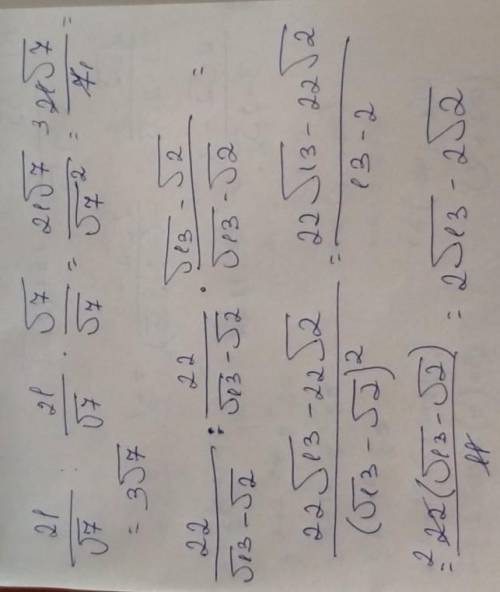 21/√7 : 21/√7 · √7/√7 = 21√7/√7² = 3 21√7/7 1 =
= 3√7
22/√13-√2 : 22/√13-√2 · √13-√2/√13-√2 =
22√13-22√2/(√13-√2)² = 22√13-22√2/13-2
= 2 22(√13-√2)/11 = 2√13-2√2